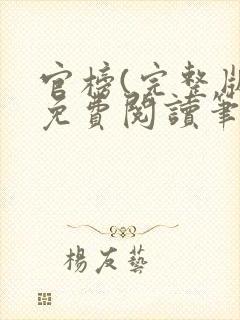 官榜(完整版
免費閱讀筆
楊友藝